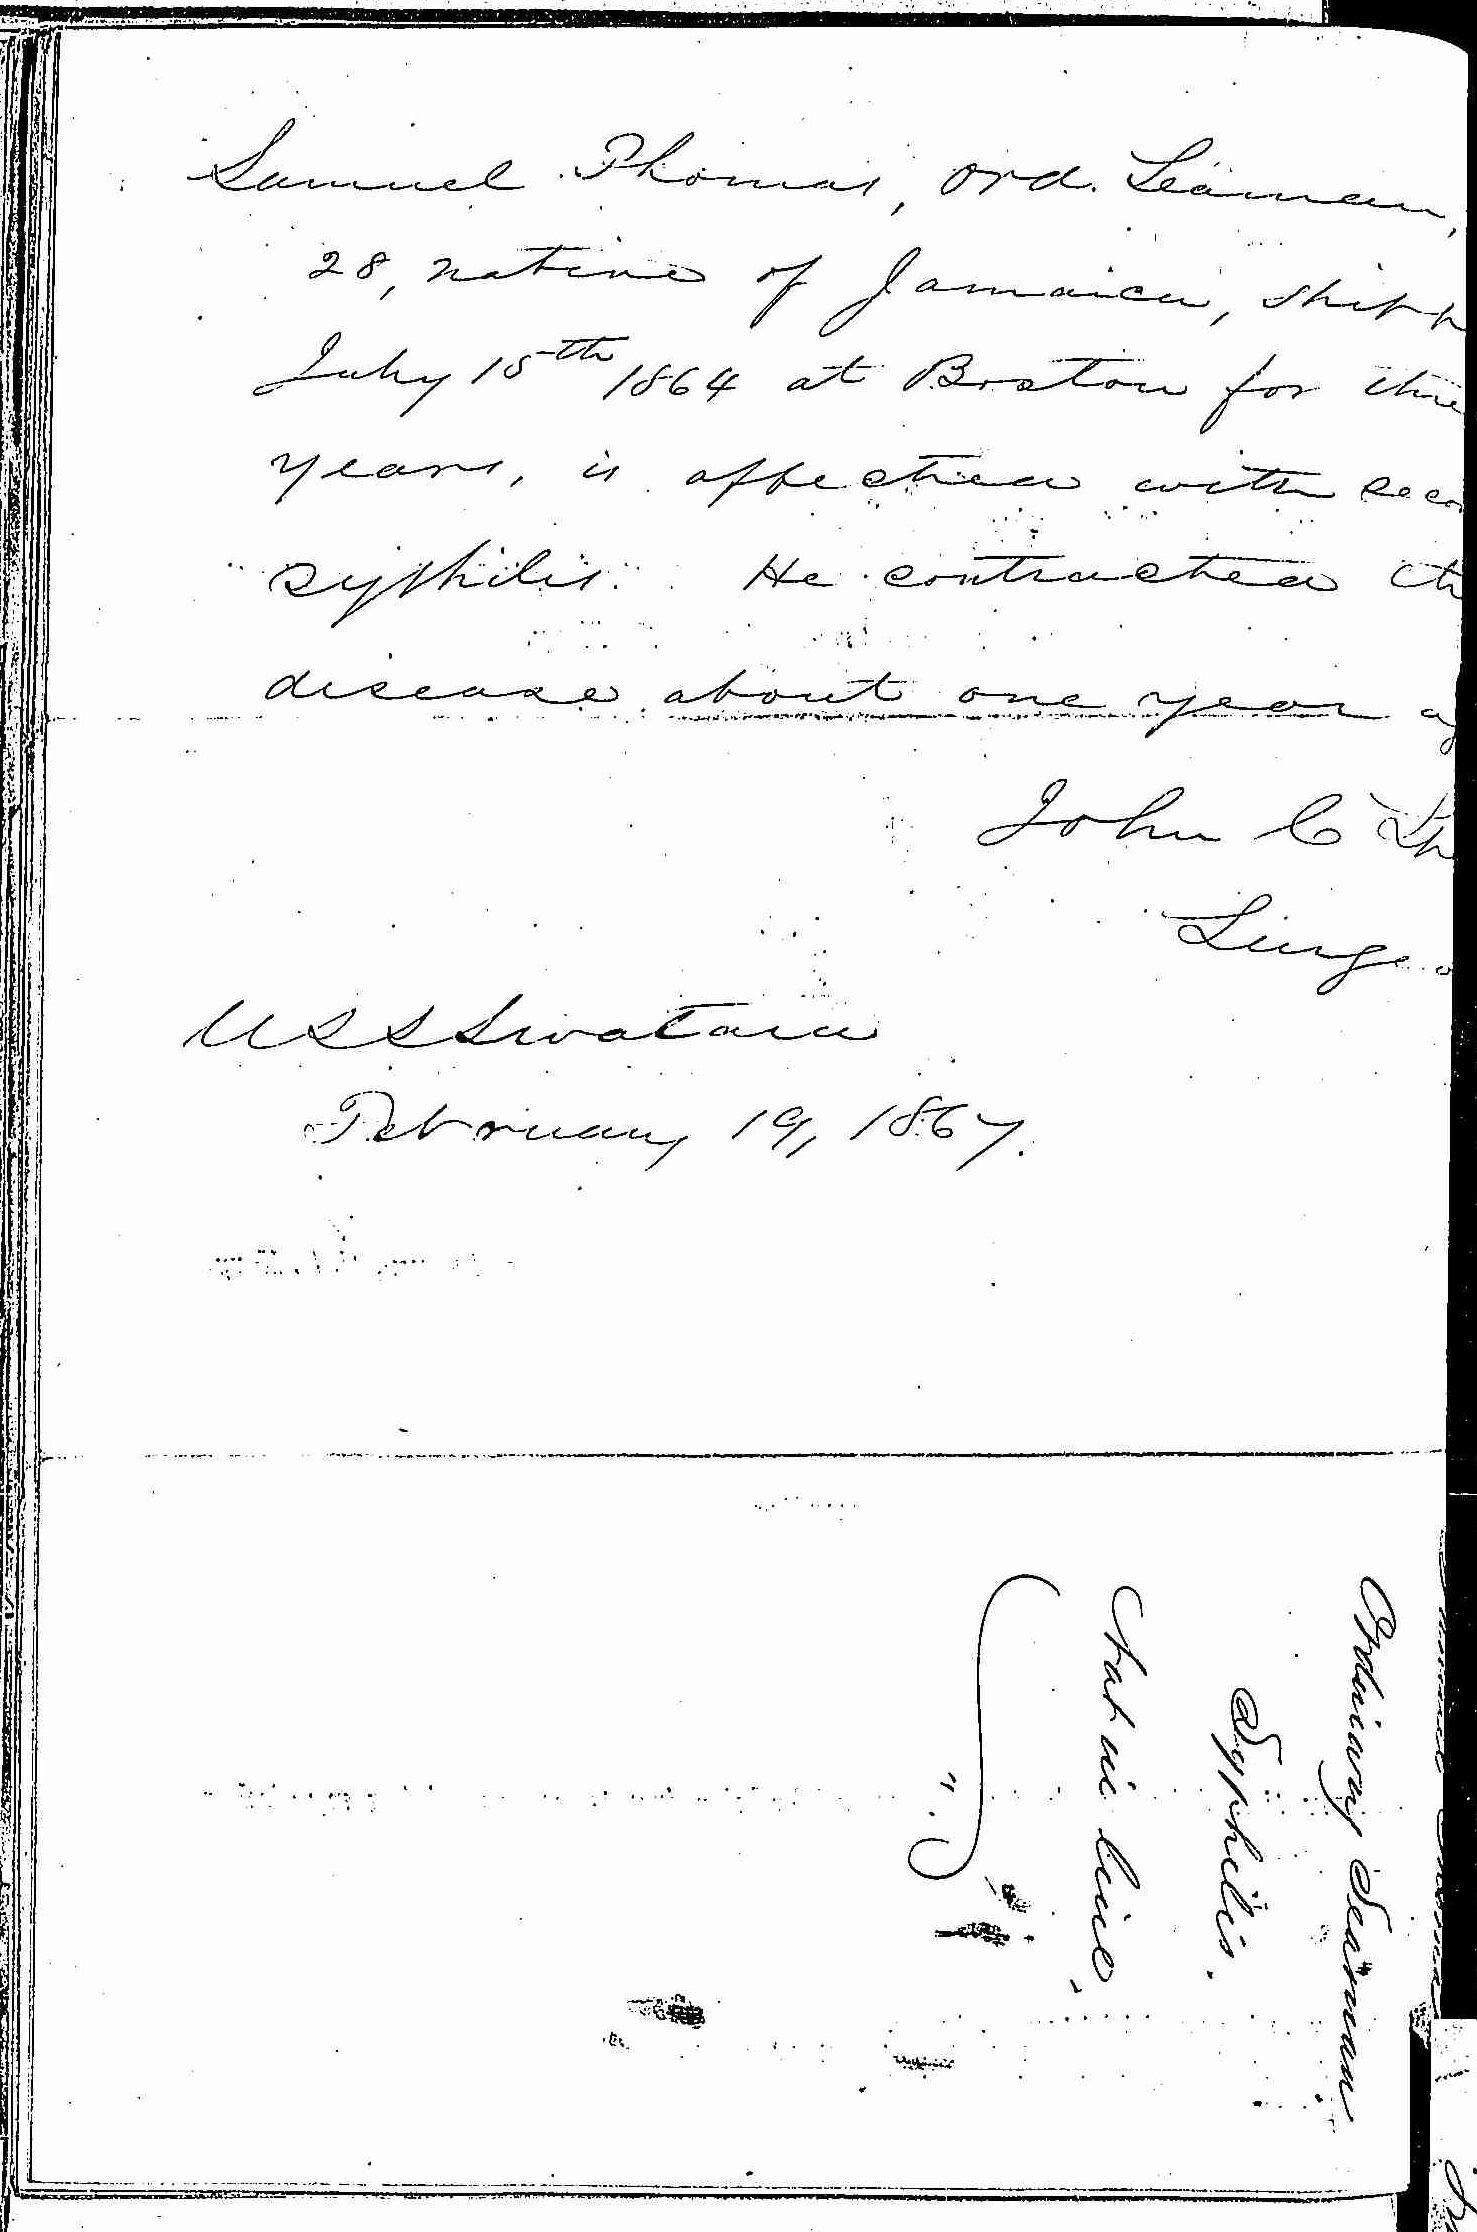 Samuel Thomas, Ord. Seaman,
28, native of Jamaica, shipp
July 15th 1864 at Boston for thre
years, is affected with seco
syphilis. He contracted th
disease about one year ag
John C Sp
Surgeo
USS Swatara
February 19, 1867.
Ordinary Seaman
Syphilis.
Not in line